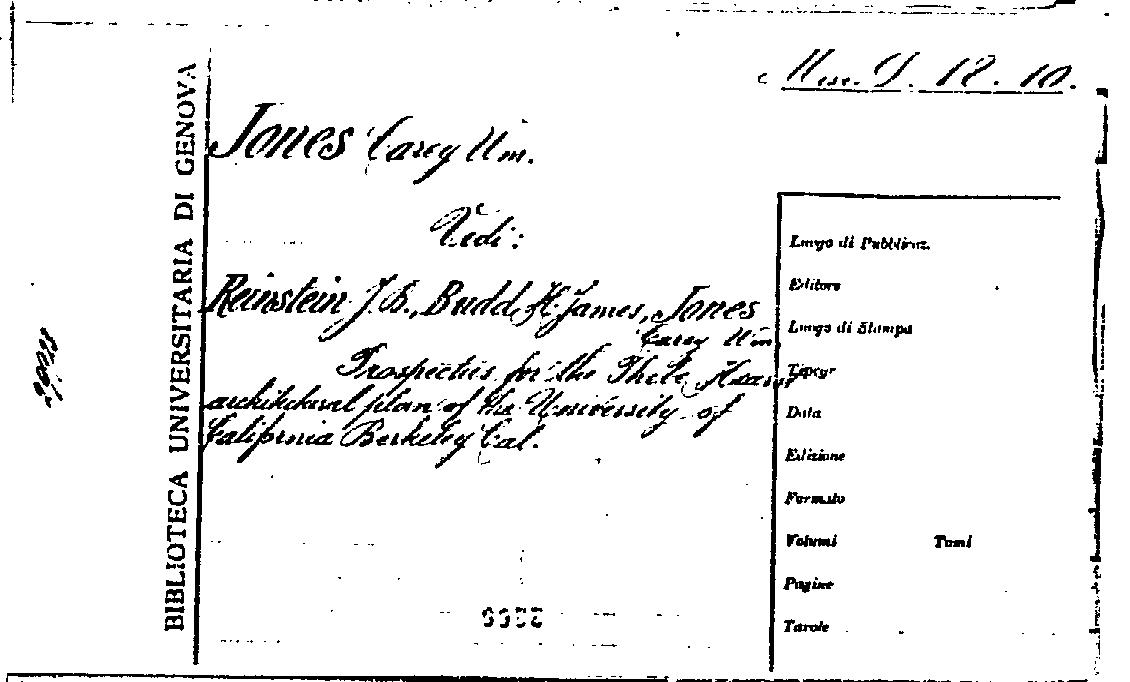 Misc. G. 12. 10.
BIBLIOTECA UNIVERSITARIA DI GENOVA
Jones Carey Wm.
Vedi:
Reinstein J. B., Budd, H. James, Jones
Carey Wm.
Prospectus for the Phebe Hearst
architectural plan of the University of
California Berkeley Cal.
Luogo di Pubblicaz.
Editore
Luogo di Stampa
Tipogr
Data
Edizione
Formato
Volumi Tomi
Pagine
Tavole